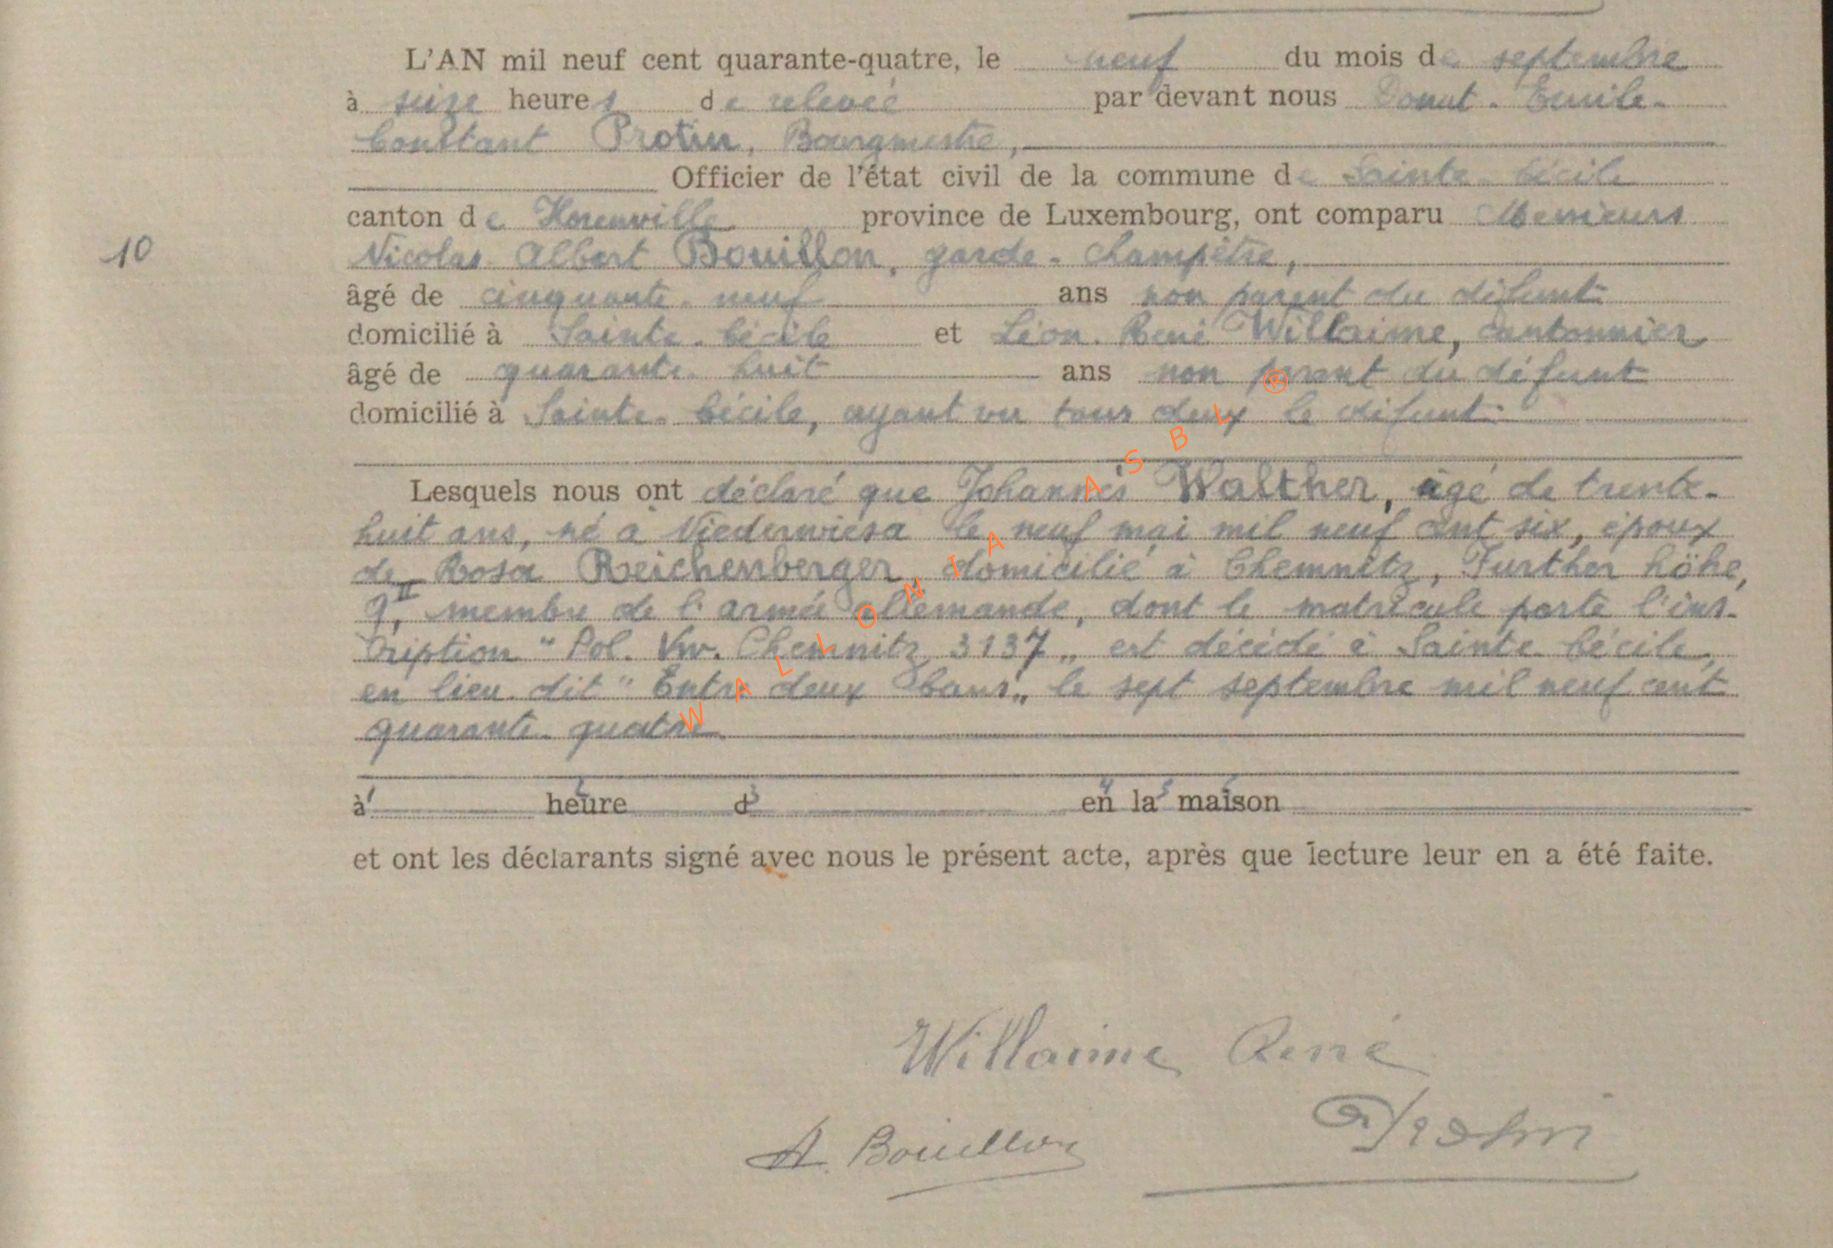 L'AN mil neuf cent quarante-quatre, le neuf du mois de septembre
à seize heures de relevée par devant nous Donat-Emile-
Constant Protin, Bourgmestre,
Officier de l'état civil de la commune de Sainte-Cécile
canton de Florenville province de Luxembourg, ont comparu Messieurs
10
Nicolas-Albert Bouillon, garde-champêtre,
âgé de cinquante-neuf ans non parent du défunt
domicilié à Sainte-Cécile et Léon-René Willaime, cantonnier
âgé de quarante-huit ans non parent du défunt
domicilié à Sainte-Cécile, ayant vu tous deux le défunt.
Lesquels nous ont déclaré que Johannès Walther, âgé de trente-
huit ans, né à Niederwiesa le neuf mai mil neuf cent six, époux
de Rosa Reichenberger domicilié à Chemnitz, Further höhe,
9 II, membre de l'armée allemande, dont le matricule porte l'ins-
cription "Pol. Vw. Chemnitz 3137" est décédé à Sainte Cécile,
en lieu-dit "Entre deux bans" le sept septembre mil neuf cent
quarante-quatre
à 1 heure 2 d 3 en 4 la 5 maison 6
et ont les déclarants signé avec nous le présent acte, après que lecture leur en a été faite.
Willaime René
A. Bouillon
Protin
WALLONIA ASBL ®